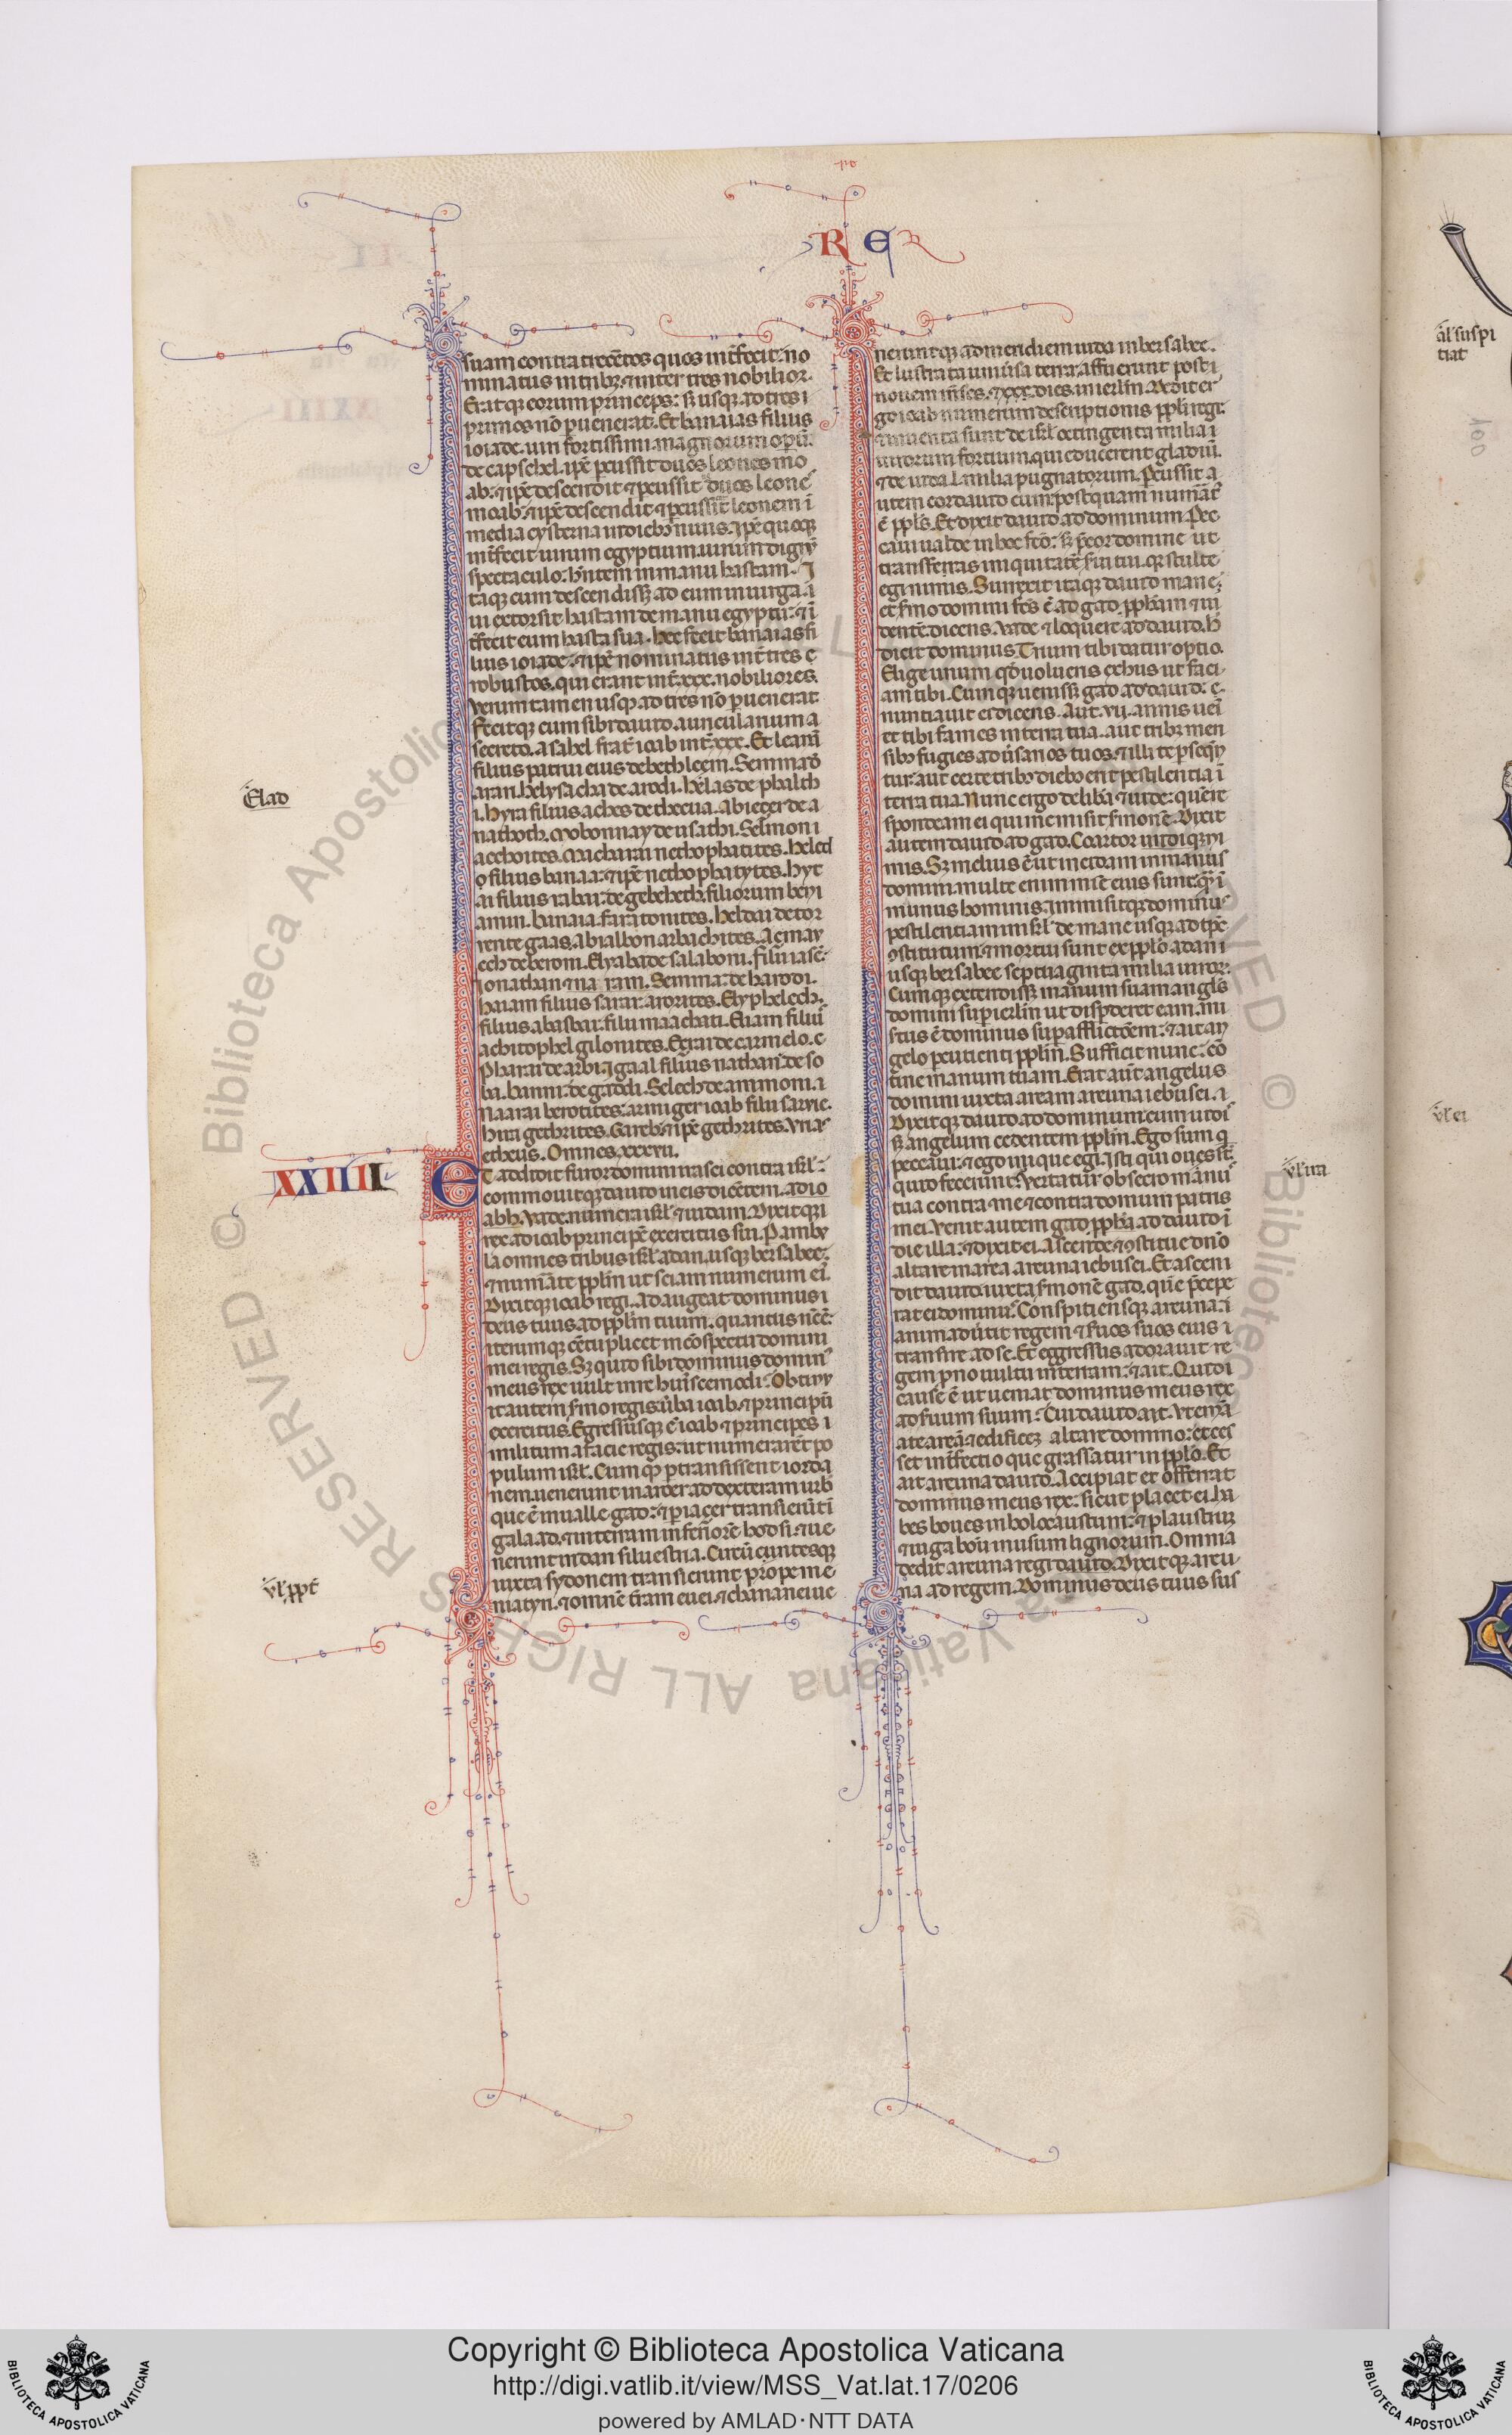 RE
suam contra trecẽtos quos int̃fecit: no
minatus in tribꝫ. ⁊ inter tres nobilior.
Eratqꝫ eorum princeps: sꝫ usqꝫ ad tres
primos nõ ꝑuenerat. Et banaias filius
ioiade. uiri fortissimi magnorum oꝑũ.
de capsehel. ip̃e ꝑcussit duos leones mo
ab: ⁊ ip̃e descendit ⁊ ꝑcussit duos leone
moab: ⁊ ip̃e descendit ⁊ ꝑcussit leonem ĩ
media cysterna in diebꝫ niuis. ip̃e quoqꝫ
int̃fecit uirum egyptium. uirum dignũ
spectaculo: hñtem in manu hastam. I
taqꝫ cum descendissꝫ ad eum in uirga. ĩ
ui extorsit hastam de manu egyptii: ⁊ ĩ
t̃fecit eum hasta sua. hec fecit banaias fi
lius ioiade. ⁊ ip̃e nominatus int̃ tres
robustos. qui erant int̃ .xxx. nobiliores.
Verum tamen usqꝫ ad tres nõ ꝑuenerat
Fecitqꝫ eum sibi dauid. auricularium a
secreto. asahel frat̃ ioab int̃ .xxx. Et leanã
filius patrui eius de bethleem. Semma d̃
arari. helyca cha de arodi. helas de phalth
i. hyra filius aches de thecua. abiezer de a
nathoth. mobonnay de usathi. Selmon
acohites. macharai nethophatites. heled
filius banaa: ⁊ ip̃e nethophatytes. hyt
ai filius rabai: de gebeheth. filiorum beni
amin. banaia. faratonites. heldai de tor
rente gaas. abialbon arbachites. azmay
eth de berom. Elyaba de salaboni. filii iasẽ.
Ionathan ⁊ na ram. Semma: de harodi.
haiam filius sarar: arorites. Elyphelech.
filius abasbai: filii maachati. Eliam filiꝰ
achitophel gilonites. Ezrai de carmelo.
Pharai de arbi. Igaal filius nathan de so
ba. banni: de gaddi. Selech de ammoni.
Naarai berotites: armiger ioab filii saruie.
hira gethrites. Gareb: ⁊ ip̃e gethrites. Vria
etheus. Omnes .xxxvii.
XXIIII
ET addidit furor domini irasci contra isrl̃:
commouitqꝫ dauid in eis dicẽtem. ad io
ab. Vade. numera isrl̃ ⁊ iudam. Dixitqꝫ
rex ad ioab principẽ exercitus sui. Pambu
la omnes tribus isrl̃ a dan. usqꝫ bersabee.
⁊ num̃ate ppl̃m ut sciam numerum eiꝰ
Dixitqꝫ ioab regi. adaugeat dominus
deus tuus ad ppl̃m tuum. quantus nc̃ ẽ:
iterumqꝫ cẽtuplicet in cõspectu domini
mei regis. Sꝫ quid sibi dominus domiꝰ
meus rex uult in re huiuscemodi: Obtinu
it autem sermo regis uerba ioab. ⁊ principũ
exercitus. Egressusqꝫ ẽ ioab ⁊ principes
militum a facie regis: ut numerarẽt po
pulum isrl̃. Cumqꝫ ꝑtransissent iorda
nem. uenerunt in aroer ad dexteram urbis
que ẽ in ualle gad: ⁊ ꝑ iazer transierũt ĩ
galaad. ⁊ in terram inferiorẽ hodsi. ⁊ ue
nerunt in dan siluestria. Circũeuntesqꝫ
iuxta sydonem transierunt prope me
niatyn. ⁊ omnẽ t̃ram euei. ⁊ chananei ue
Elad
ul̃ ppt̃
neruntqꝫ ad meridiem iuda in bersabee.
Et lustrata uniũsa terra: affuerunt post
nouem mẽses. ⁊ xxx. dies in ierl̃m. Dedit er
go ioab numerum descriptionis ppl̃i regi:
⁊ inuenta sunt de isrl̃ octingenta milia
uirorum fortium. qui educerent gladiũ.
⁊ de iuda. l. milia pugnatorum. Ꝑcussit a
utem cor dauid eum: postquam num̃atꝰ
ẽ ppl̃s. Et dixit dauid ad dominum. Pec
caui ualde in hoc fc̃o: sꝫ p̃cor domine ut
transferas iniquitatẽ serui tui. qꝛ stulte
egi nimis. Surrexit itaqꝫ dauid mane:
et sermo domini fc̃s ẽ ad gad. pph̃am ⁊ ui
dentẽ dicens. Vade ⁊ loquere ad dauid. h̃
dicit dominus. Trium tibi datur optio.
Elige unum qd̃ uolueris ex his ut faci
am tibi. Cumqꝫ uenissꝫ gad ad dauid:
nuntiauit ei dicens. Aut .vii. annis uei
et tibi fames in terra tua. aut tribꝫ men
sibꝫ fugies aduersarios tuos. ⁊ illi te ꝑseqũ
tur: aut certe tribꝫ diebꝫ erit pestilentia ĩ
terra tua. Nunc ergo delibera ⁊ uide: quẽ re
spondeam ei qui me misit sermonẽ. Dixit
autem dauid ad gad. Coartor undiqꝫ ni
mis. Sꝫ melius ẽ ut incidam in manus
domini. multe enim mĩe eius sunt: qꝫ ĩ
manus hominis. Immisitqꝫ dominus
pestilentiam in isrl̃ de mane usqꝫ ad tp̃s
ꝯstitutum. ⁊ mortui sunt ex ppl̃o a dan
usqꝫ bersabee septuaginta milia uiror.
Cumqꝫ extendissꝫ manum suam angl̃s
domini sup ierl̃m ut disꝑderet eam. mi
sertus ẽ dominus sup afflictiõem: ⁊ ait an
gelo ꝑcutienti ppl̃m. Sufficit nunc: cõ
tine manum tuam. Erat aũt angelus
domini iuxta aream areuna iebusei.
Dixitqꝫ dauid ad dominum: cum uidiꝫ
sꝫ angelum cedentem ppl̃m. Ego sum q̃
peccaui: ⁊ ego inique egi. Isti qui oues st̃
quid fecerunt: Vertatur obsecro manus
tua contra me ⁊ contra domum patris
mei. Venit autem gad. pph̃a ad dauid ĩ
die illa: ⁊ dixit ei. Ascende ⁊ ꝯstitue dño
altare in area areuna iebusei. Et ascen
dit dauid iuxta sermonẽ gad. quẽ p̃cepe
rat ei dominus. Conspitiensqꝫ areuna:
animaduertit regem ⁊ seruos suos eius
transire ad se. Et eggressus adorauit re
gem ꝓno uultu in terram: ⁊ ait. Quid
cause ẽ ut ueniat dominus meus rex
ad seruum suum: Cui dauid ait. Vt emã
a te areã ⁊ edificeꝫ altare domino: et ces
set int̃fectio que grassatur in ppl̃o. Et
ait areuna dauid. Accipiat et offerat
dominus meus rex: sicut placet ei. ha
bes boues in holocaustum: ⁊ plaustruꝫ
⁊ iuga boũ in usum lignorum. Omnia
dedit areuna regi dauid. Dixitqꝫ areu
na ad regem. Dominus deus tuus sus
ul̃ ira
al̃ suspi
tiat
ul̃ ei
100
Copyright © Biblioteca Apostolica Vaticana
http://digi.vatlib.it/view/MSS_Vat.lat.17/0206
powered by AMLAD·NTT DATA
BIBLIOTECA APOSTOLICA VATICANA
BIBLIOTECA APOSTOLICA VATICANA